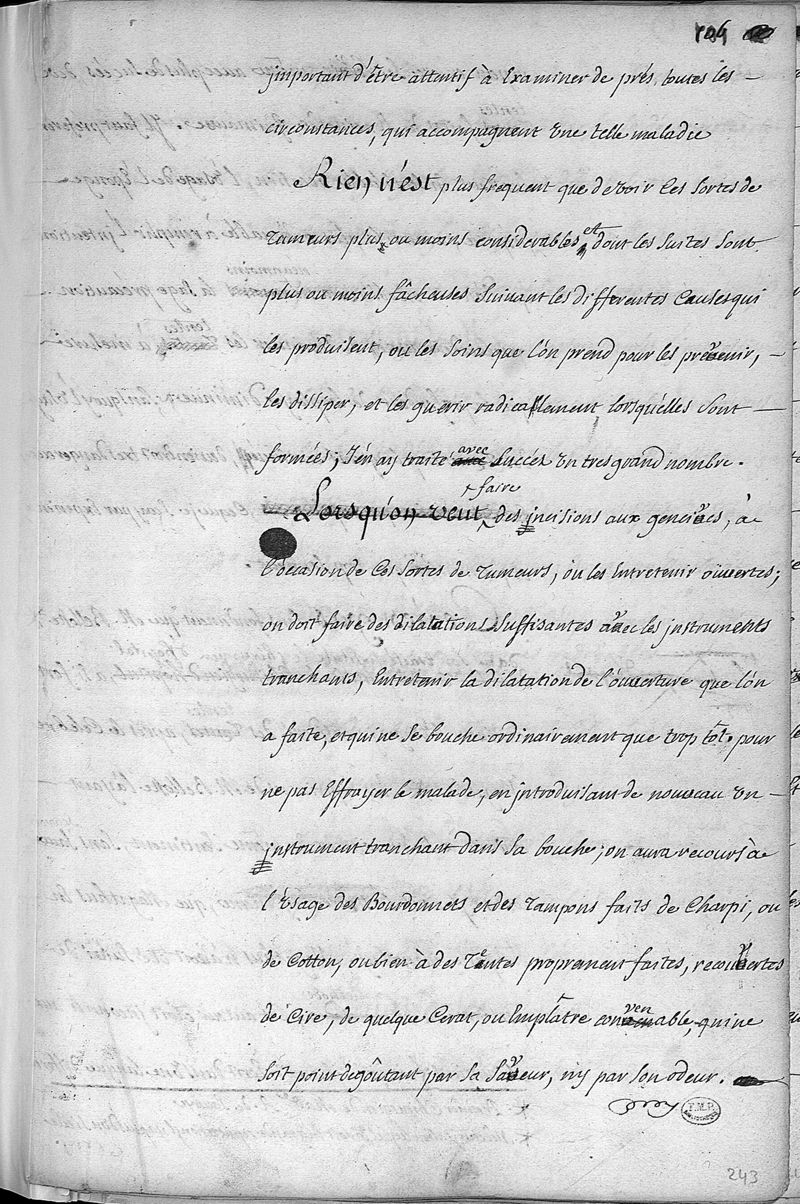 106
jmportant d'être attentif à Examiner de prés, toutes les —
circonstances, qui accompagnent Une telle maladie
Rien n'est plus frequent que de voir Ces Sortes de
Tumeurs plus ou moins considerables, et dont les Suites Sont
plus ou moins fâcheuses Suivant les differentes Causes qui
les produisent, ou les Soins que l'on prend pour les prevenir, —
les dissiper, et les guerir radicallement lorsqu'elles Sont —
formées; J'en ay traité avec Succes Un tres grand nombre.
Lorsqu'on veut faire des jncisions aux gencives, à
l'occasion de Ces Sortes de Tumeurs, ou les Entretenir ouvertes;
on doit faire des dilatations Suffisantes avec les jnstruments
tranchants, Entretenir la dilatation de l'ouverture que l'on
a faite, et qui ne Se bouche ordinairement que trop tôt. pour
ne pas Effrayer le malade, en jntroduisant de nouveau Un —
jnstrument tranchant dans Sa bouche; on aura recours à
l'Usage des Bourdonnets et des Tampons faits de Charpi, ou
de Cotton, ou bien à des Tentes proprement faites, recouvertes
de Cire, de quelque Cerat, ou Emplâtre convenable, qui ne
Soit point degoûtant par Sa Saveur, n'y par Son odeur.
243